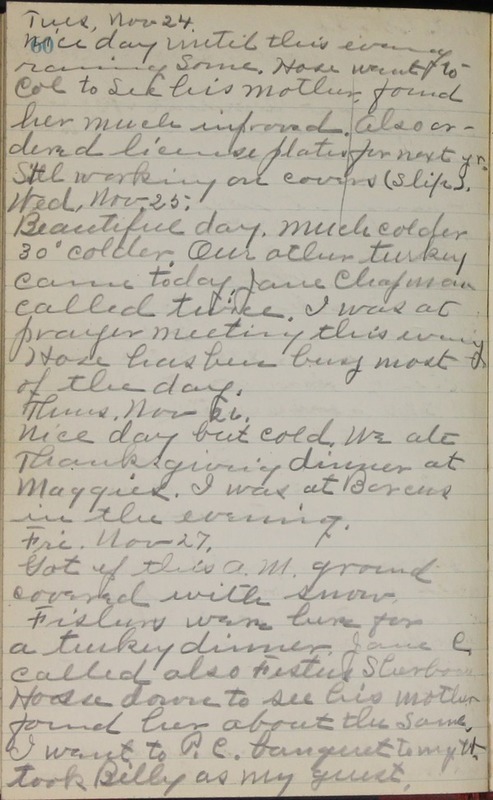 Tues, Nov 24.
60
Nice day until this evening
raining some. Hose want to
Col to see his mother, found
her much improved. Also or-
dered license plates for next yr.
Still working on covers (slips).
Wed, Nov-25:
Beautiful day. Much colder
30° colder. Our other turkey
came today. Jane Chapman
called twice. I was at
prayer meeting this evening
Hose has been busy most
of the day.
Thurs. Nov 26.
Nice day but cold. We ate
Thanksgiving dinner at
Maggies. I was at Barcus
in the evening.
Fri. Nov-27.
Got up this a.m. ground
covered with snow.
Fishers were here for
a turkey dinner. Jane C
called also Festus
Hose down to see his mother
found her about the same.
I want to P.C. banquet tonight.
took Billy as my guest.